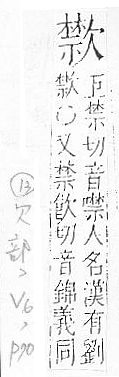 㱈
巨禁切音噤人名漢有劉
㱈〇又禁飲切音錦義同
⑬欠部、V6、p90